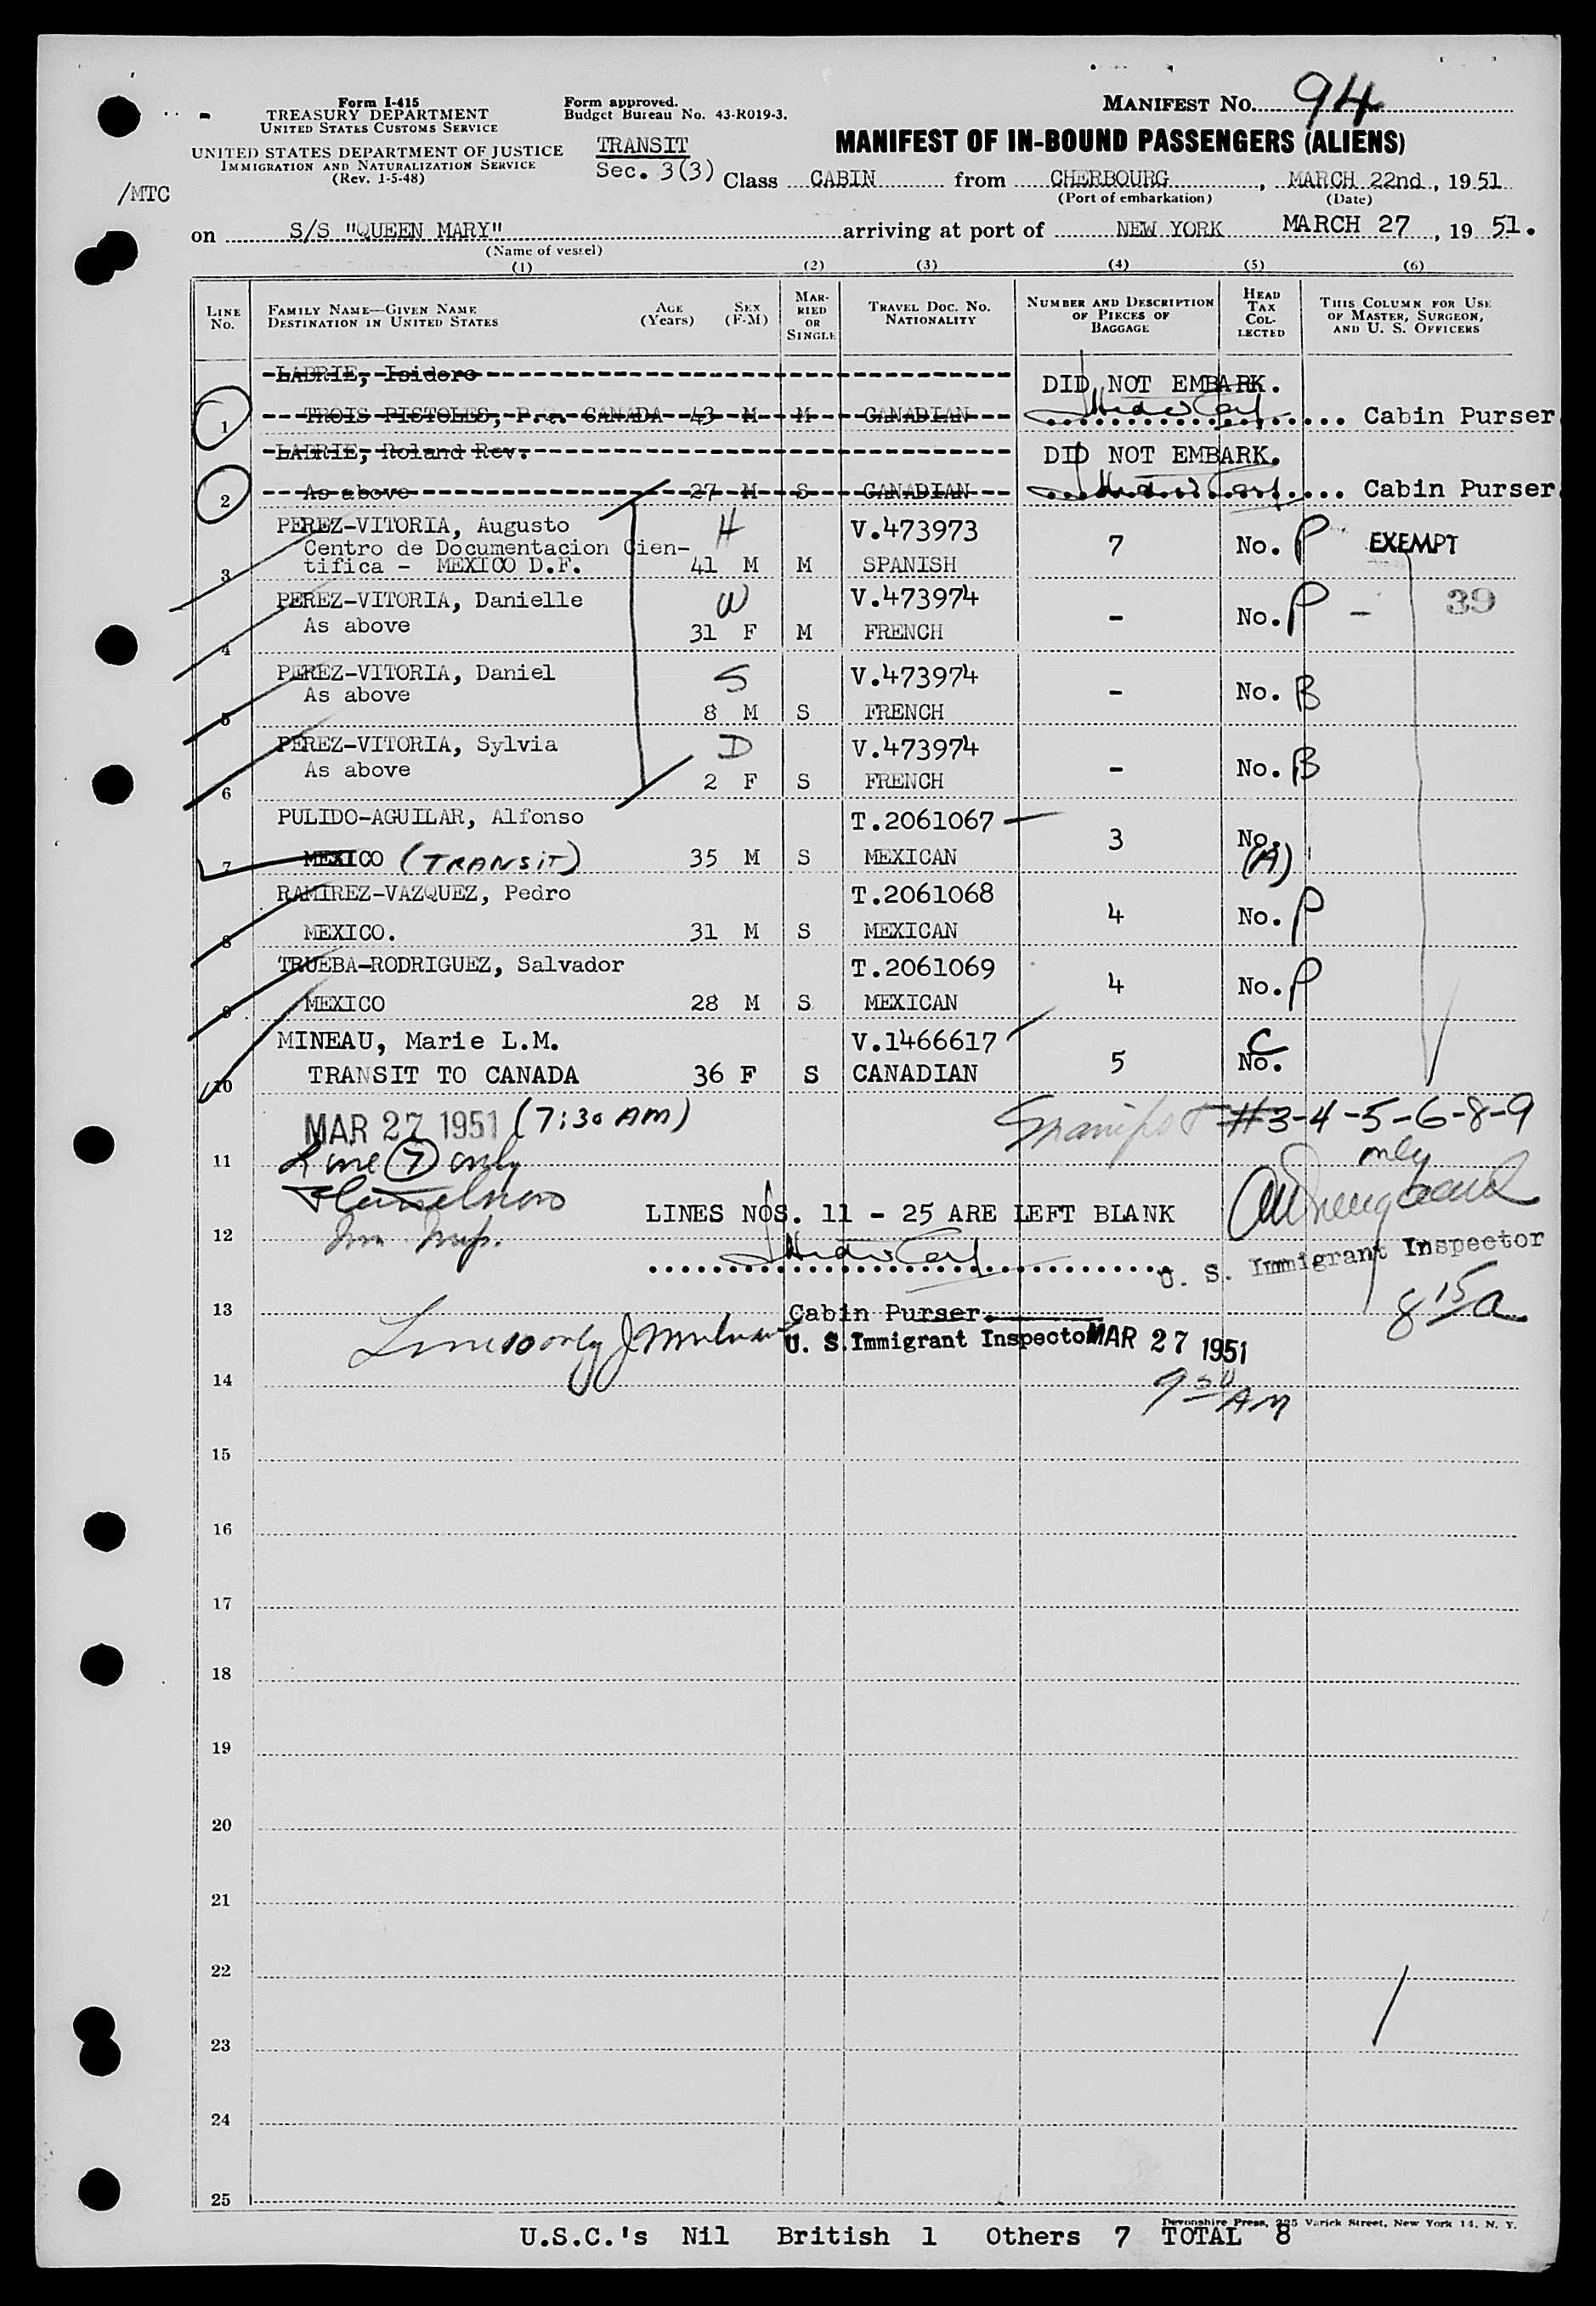 Form I-415
TREASURY DEPARTMENT
UNITED STATES CUSTOMS SERVICE
UNITED STATES DEPARTMENT OF JUSTICE
IMMIGRATION AND NATURALIZATION SERVICE
(Rev. 1-5-48)
/MTC
Form approved.
Budget Bureau No. 43-R019-3.
TRANSIT
Sec. 3(3)
MANIFEST NO. 94
MANIFEST OF IN-BOUND PASSENGERS (ALIENS)
Class CABIN from CHERBOURG, MARCH 22nd, 1951
(Port of embarkation) (Date)
on S/S "QUEEN MARY" arriving at port of NEW YORK MARCH 27, 1951.
(Name of vessel)
(1) (2) (3) (4) (5) (6)
LINE NO. FAMILY NAME—GIVEN NAME DESTINATION IN UNITED STATES AGE (Years) SEX (F-M) MARRIED OR SINGLE TRAVEL DOC. NO. NATIONALITY NUMBER AND DESCRIPTION OF PIECES OF BAGGAGE HEAD TAX COLLECTED THIS COLUMN FOR USE OF MASTER, SURGEON, AND U. S. OFFICERS
LABRIE, Isidore DID NOT EMBARK.
1 TROIS PISTOLES, P.Q. CANADA 43 M M CANADIAN Cabin Purser
LABRIE, Roland Rev. DID NOT EMBARK.
2 As above 27 M S CANADIAN Cabin Purser
PEREZ-VITORIA, Augusto H V.473973 7 No. P EXEMPT
Centro de Documentacion Cien-
3 tifica - MEXICO D.F. 41 M M SPANISH
PEREZ-VITORIA, Danielle W V.473974 - No. P - 39
4 As above 31 F M FRENCH
PEREZ-VITORIA, Daniel S V.473974 - No. B
5 As above 8 M S FRENCH
PEREZ-VITORIA, Sylvia D V.473974 - No. B
6 As above 2 F S FRENCH
PULIDO-AGUILAR, Alfonso T.2061067 3 No. (A)
7 MEXICO (TRANSIT) 35 M S MEXICAN
RAMIREZ-VAZQUEZ, Pedro T.2061068 4 No. P
8 MEXICO. 31 M S MEXICAN
TRUEBA-RODRIGUEZ, Salvador T.2061069 4 No. P
9 MEXICO 28 M S MEXICAN
MINEAU, Marie L.M. V.1466617 5 No. C
10 TRANSIT TO CANADA 36 F S CANADIAN
MAR 27 1951 (7:30 AM) Manifest #3-4-5-6-8-9
11 Line 7 only only
LINES NOS. 11 - 25 ARE LEFT BLANK
12 Imm Insp. U. S. Immigrant Inspector
13 Cabin Purser. 8 15 a
Line 10 only U. S. Immigrant Inspector MAR 27 1951
14 9 50 AM
15
16
17
18
19
20
21
22
23
24
25
Devonshire Press, 225 Varick Street, New York 14, N. Y.
U.S.C.'s Nil British 1 Others 7 TOTAL 8